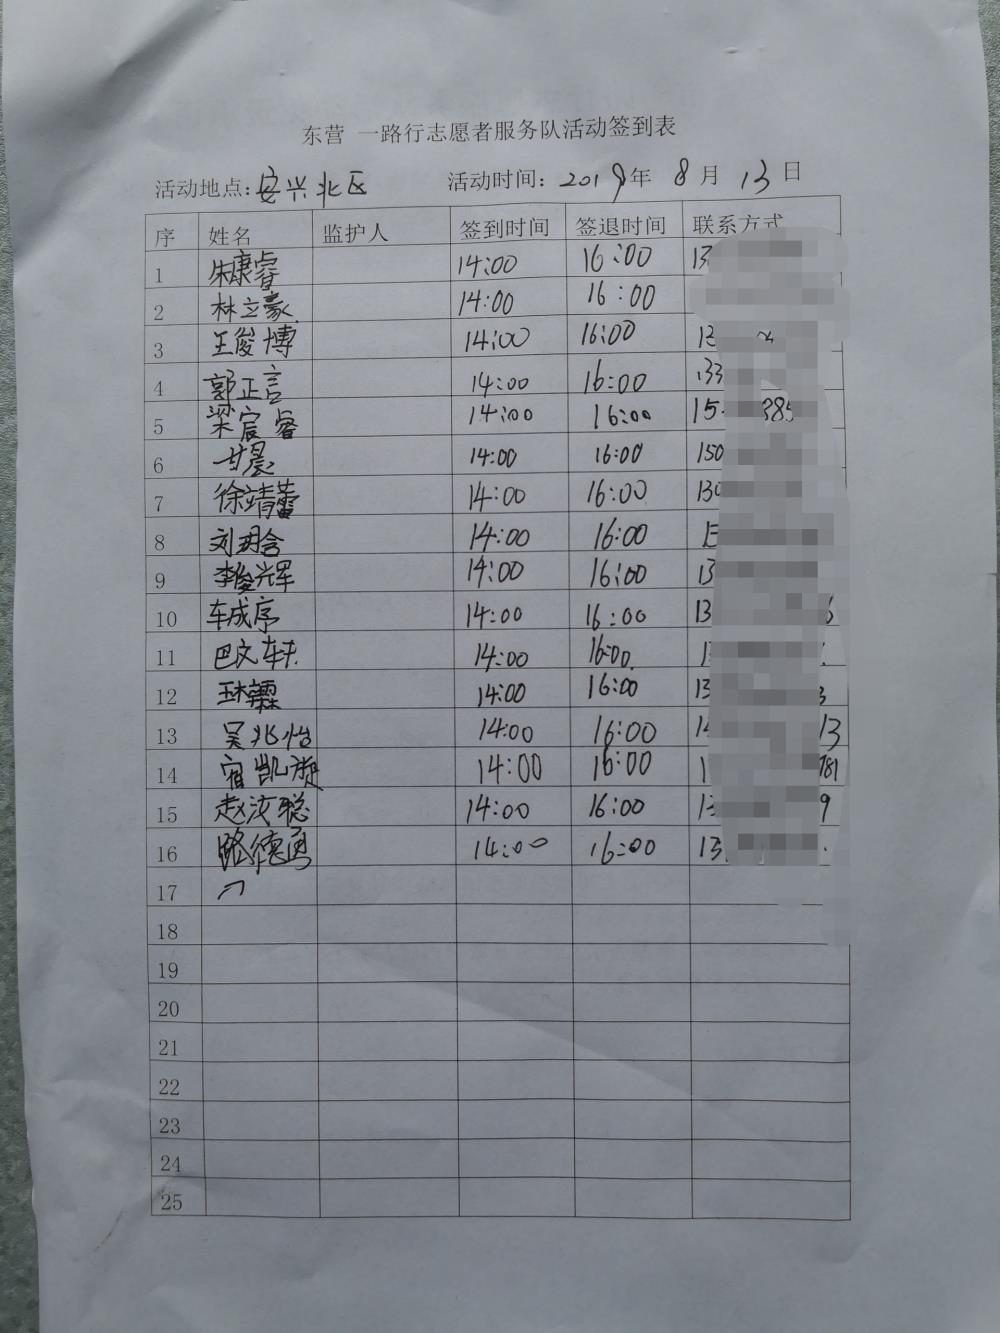 东营 一路行志愿者服务队活动签到表
活动地点:安兴北区 活动时间: 2019年 8月 13日
序 姓名 监护人 签到时间 签退时间 联系方式
1 朱康睿 14:00 16:00 13
2 林立豪 14:00 16:00
3 王俊博 14:00 16:00 13
4 郭正言 14:00 16:00 133
5 梁宸睿 14:00 16:00 15 385
6 甘晨 14:00 16:00 150
7 徐靖蕾 14:00 16:00 130
8 刘玥含 14:00 16:00 15
9 李俊兴军 14:00 16:00 13
10 车成序 14:00 16:00 13 6
11 巴文轩 14:00 16:00 1
12 14:00 16:00 13 3
13 吴兆怡 14:00 16:00 14 13
14 宿凯漩 14:00 16:00 1 781
15 赵汝聪 14:00 16:00 13 9
16 路德勇 14:00 16:00 13
17
18
19
20
21
22
23
24
25